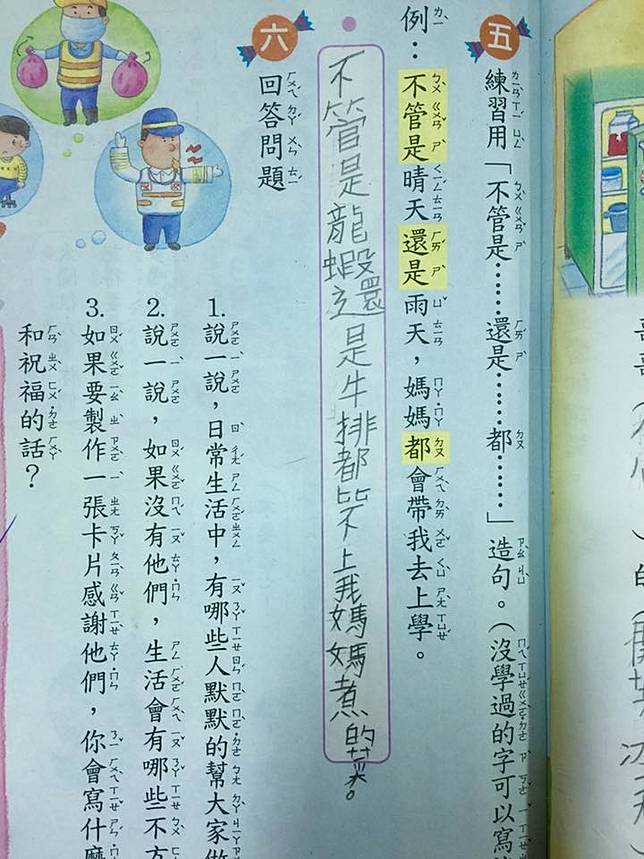 五
練習用「不管是……還是……都……」造句。(沒學過的字可以寫
例:不管是晴天還是雨天,媽媽都會帶我去上學。
不管是龍蝦還是牛排都比不上我媽媽煮的菜。
六
回答問題
1. 說一說,日常生活中,有哪些人默默的幫大家做
2. 說一說,如果沒有他們,生活會有哪些不方
3. 如果要製作一張卡片感謝他們,你會寫什麼
和祝福的話?